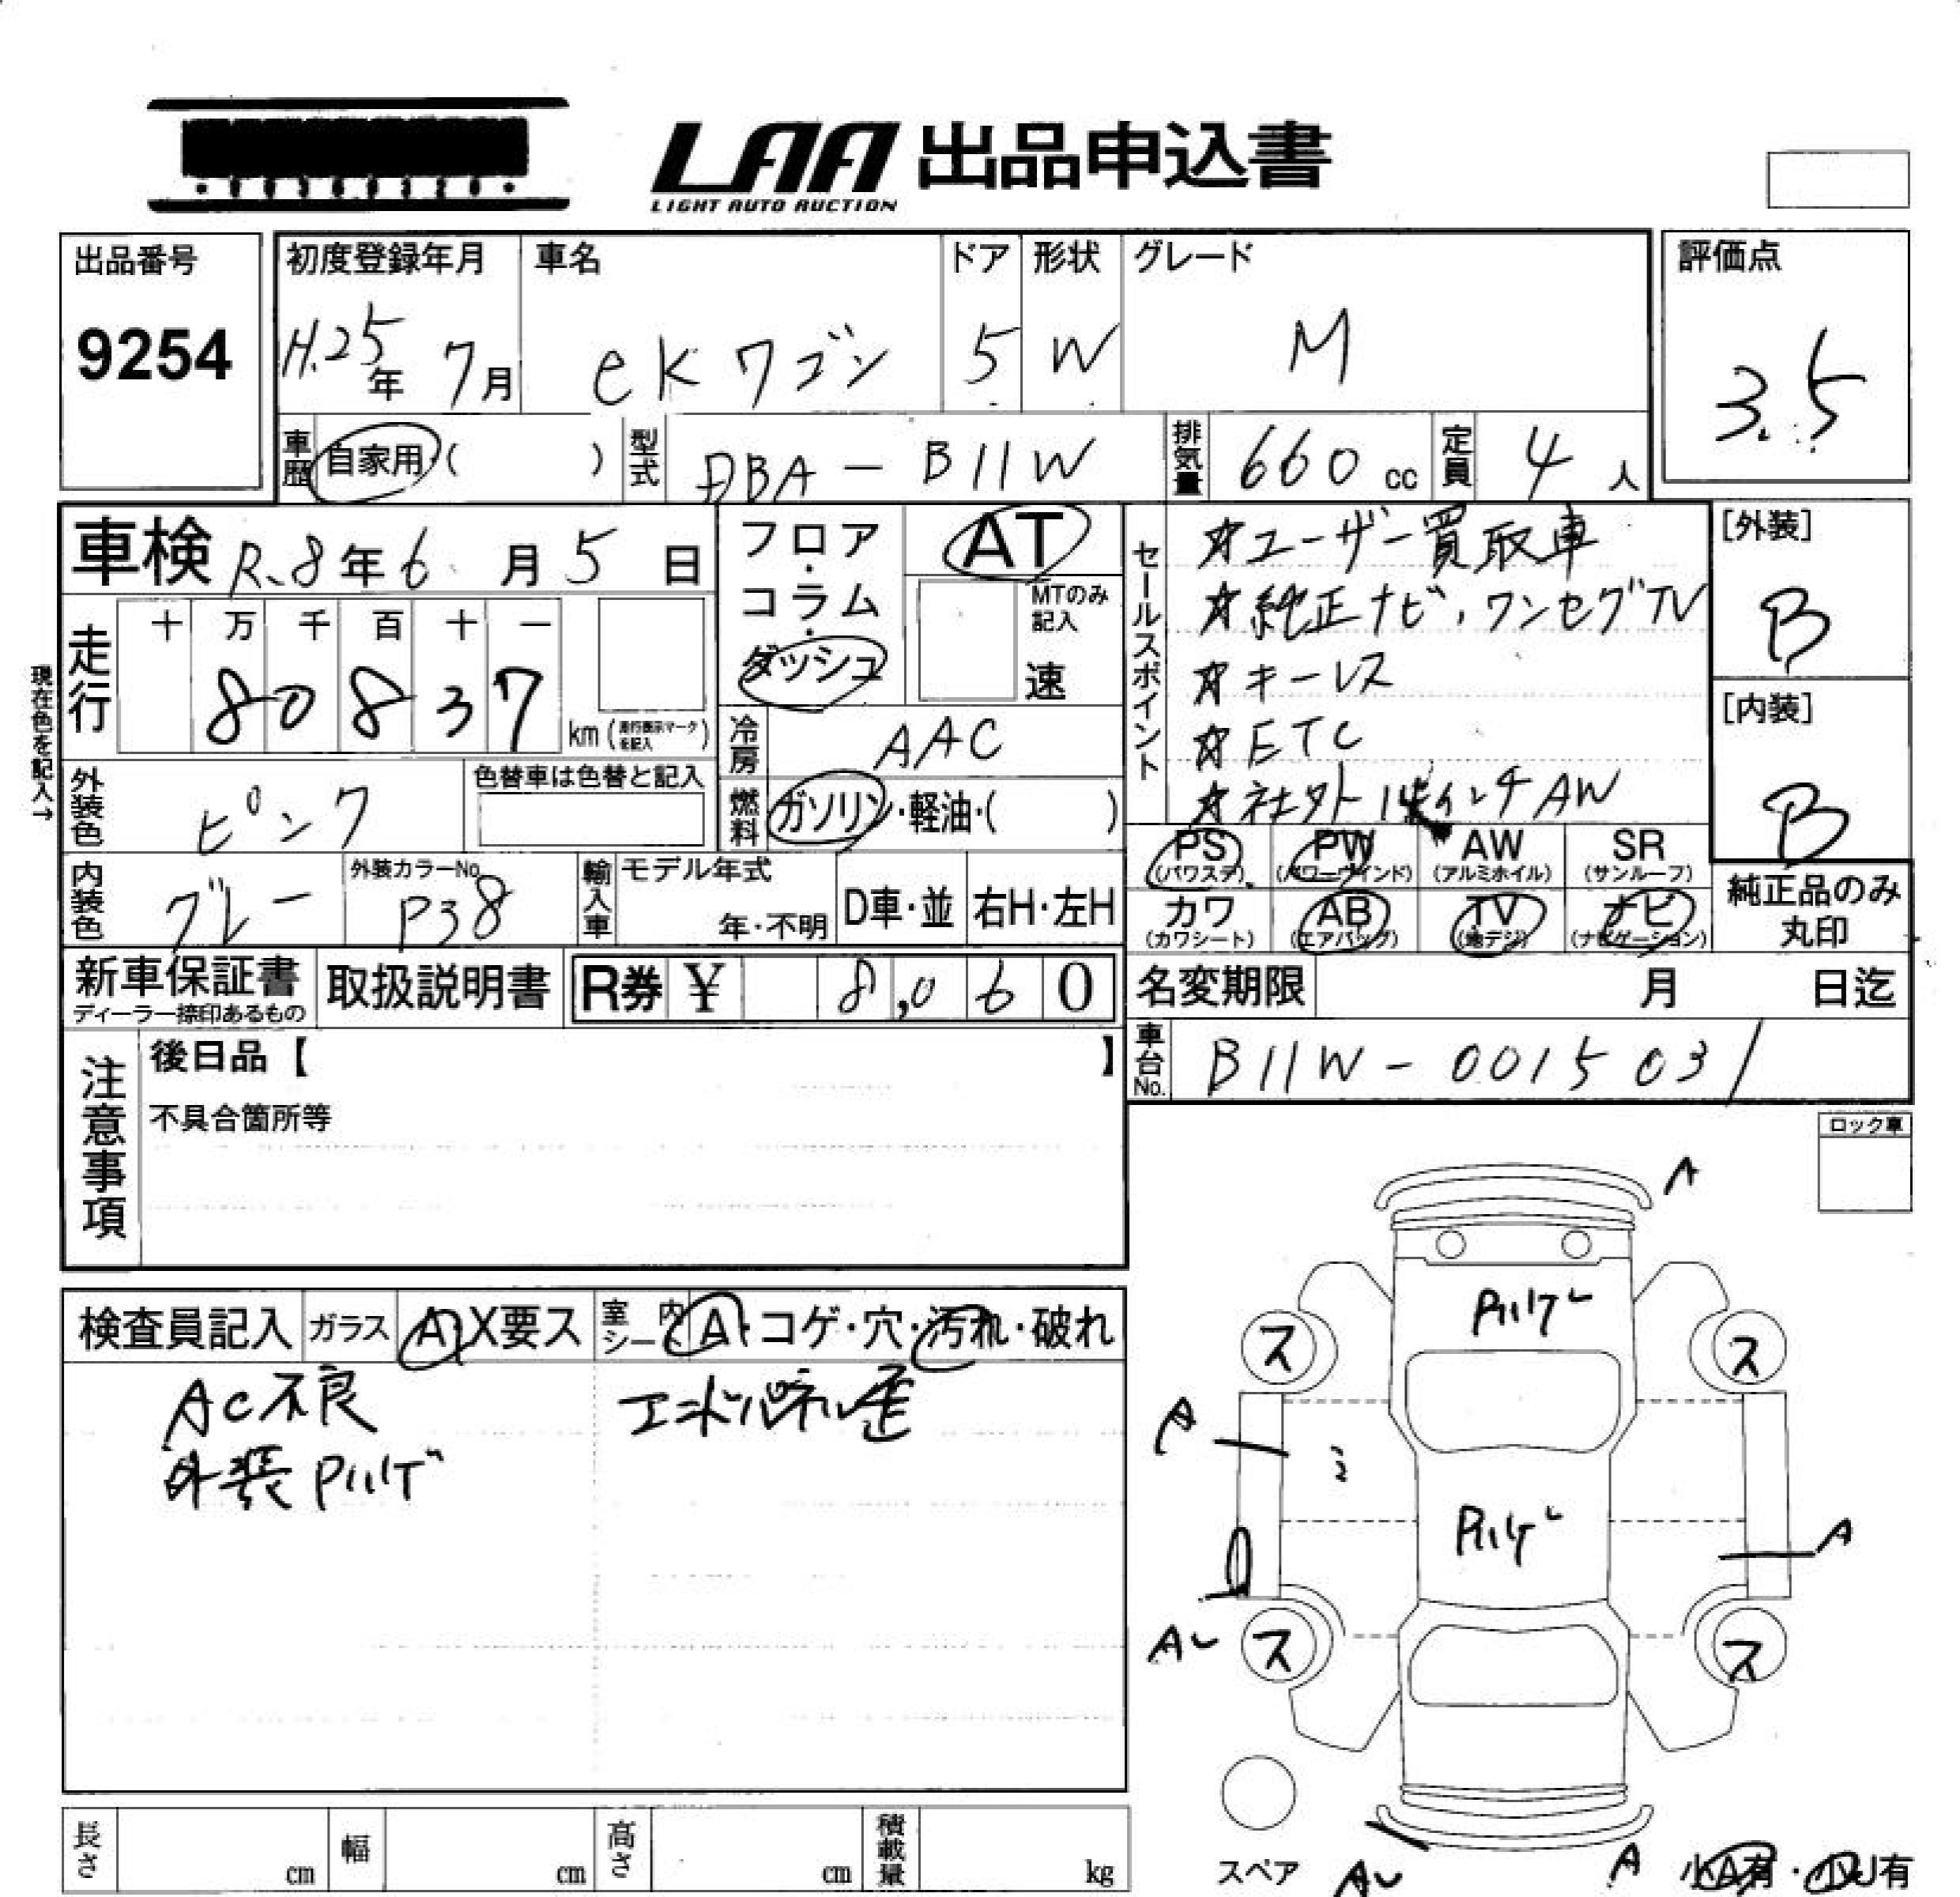 LAA 出品申込書
LIGHT AUTO AUCTION
出品番号
9254
初度登録年月
H.25年 7月
車名
eKワゴン
ドア
5
形状
W
グレード
M
評価点
3.5
車歴
自家用 ( )
型式
DBA-B11W
排気量
660 cc
定員
4 人
車検 R.8年 6月 5日
フロア・コラム・ダッシュ
AT
MTのみ記入
速
セールスポイント
☆ユーザー買取車
☆純正ナビ、ワンセグTV
☆キーレス
☆ETC
☆社外 インチAW
[外装]
B
[内装]
B
走行
十 万 千 百 十 一
8 0 8 3 7
km (走行表示マークを記入)
現在色を記入→
冷房
AAC
燃料
ガソリン・軽油・( )
外装色
ピンク
色替車は色替と記入
内装色
グレー
外装カラーNo.
P38
輸入車
モデル年式
年・不明
D車・並
右H・左H
PS (パワステ)
PW (パワーウインド)
AW (アルミホイル)
SR (サンルーフ)
カワ (カワシート)
AB (エアバッグ)
TV (地デジ)
ナビ (ナビゲーション)
純正品のみ
丸印
新車保証書
ディーラー捺印あるもの
取扱説明書
R券 ¥ 8,060
名変期限 月 日迄
車台No.
B11W-0015031
注意事項
後日品【 】
不具合箇所等
ロック車
検査員記入
ガラス A・X要ス
室内シート A・コゲ・穴・汚れ・破れ
AC不良
エンドパネル歪
外装Pハゲ
A
Pハゲ
ス ス
A
Pハゲ
A
Aし
ス ス
スペア
Aし
A
小A有・小U有
長さ cm
幅 cm
高さ cm
積載量 kg